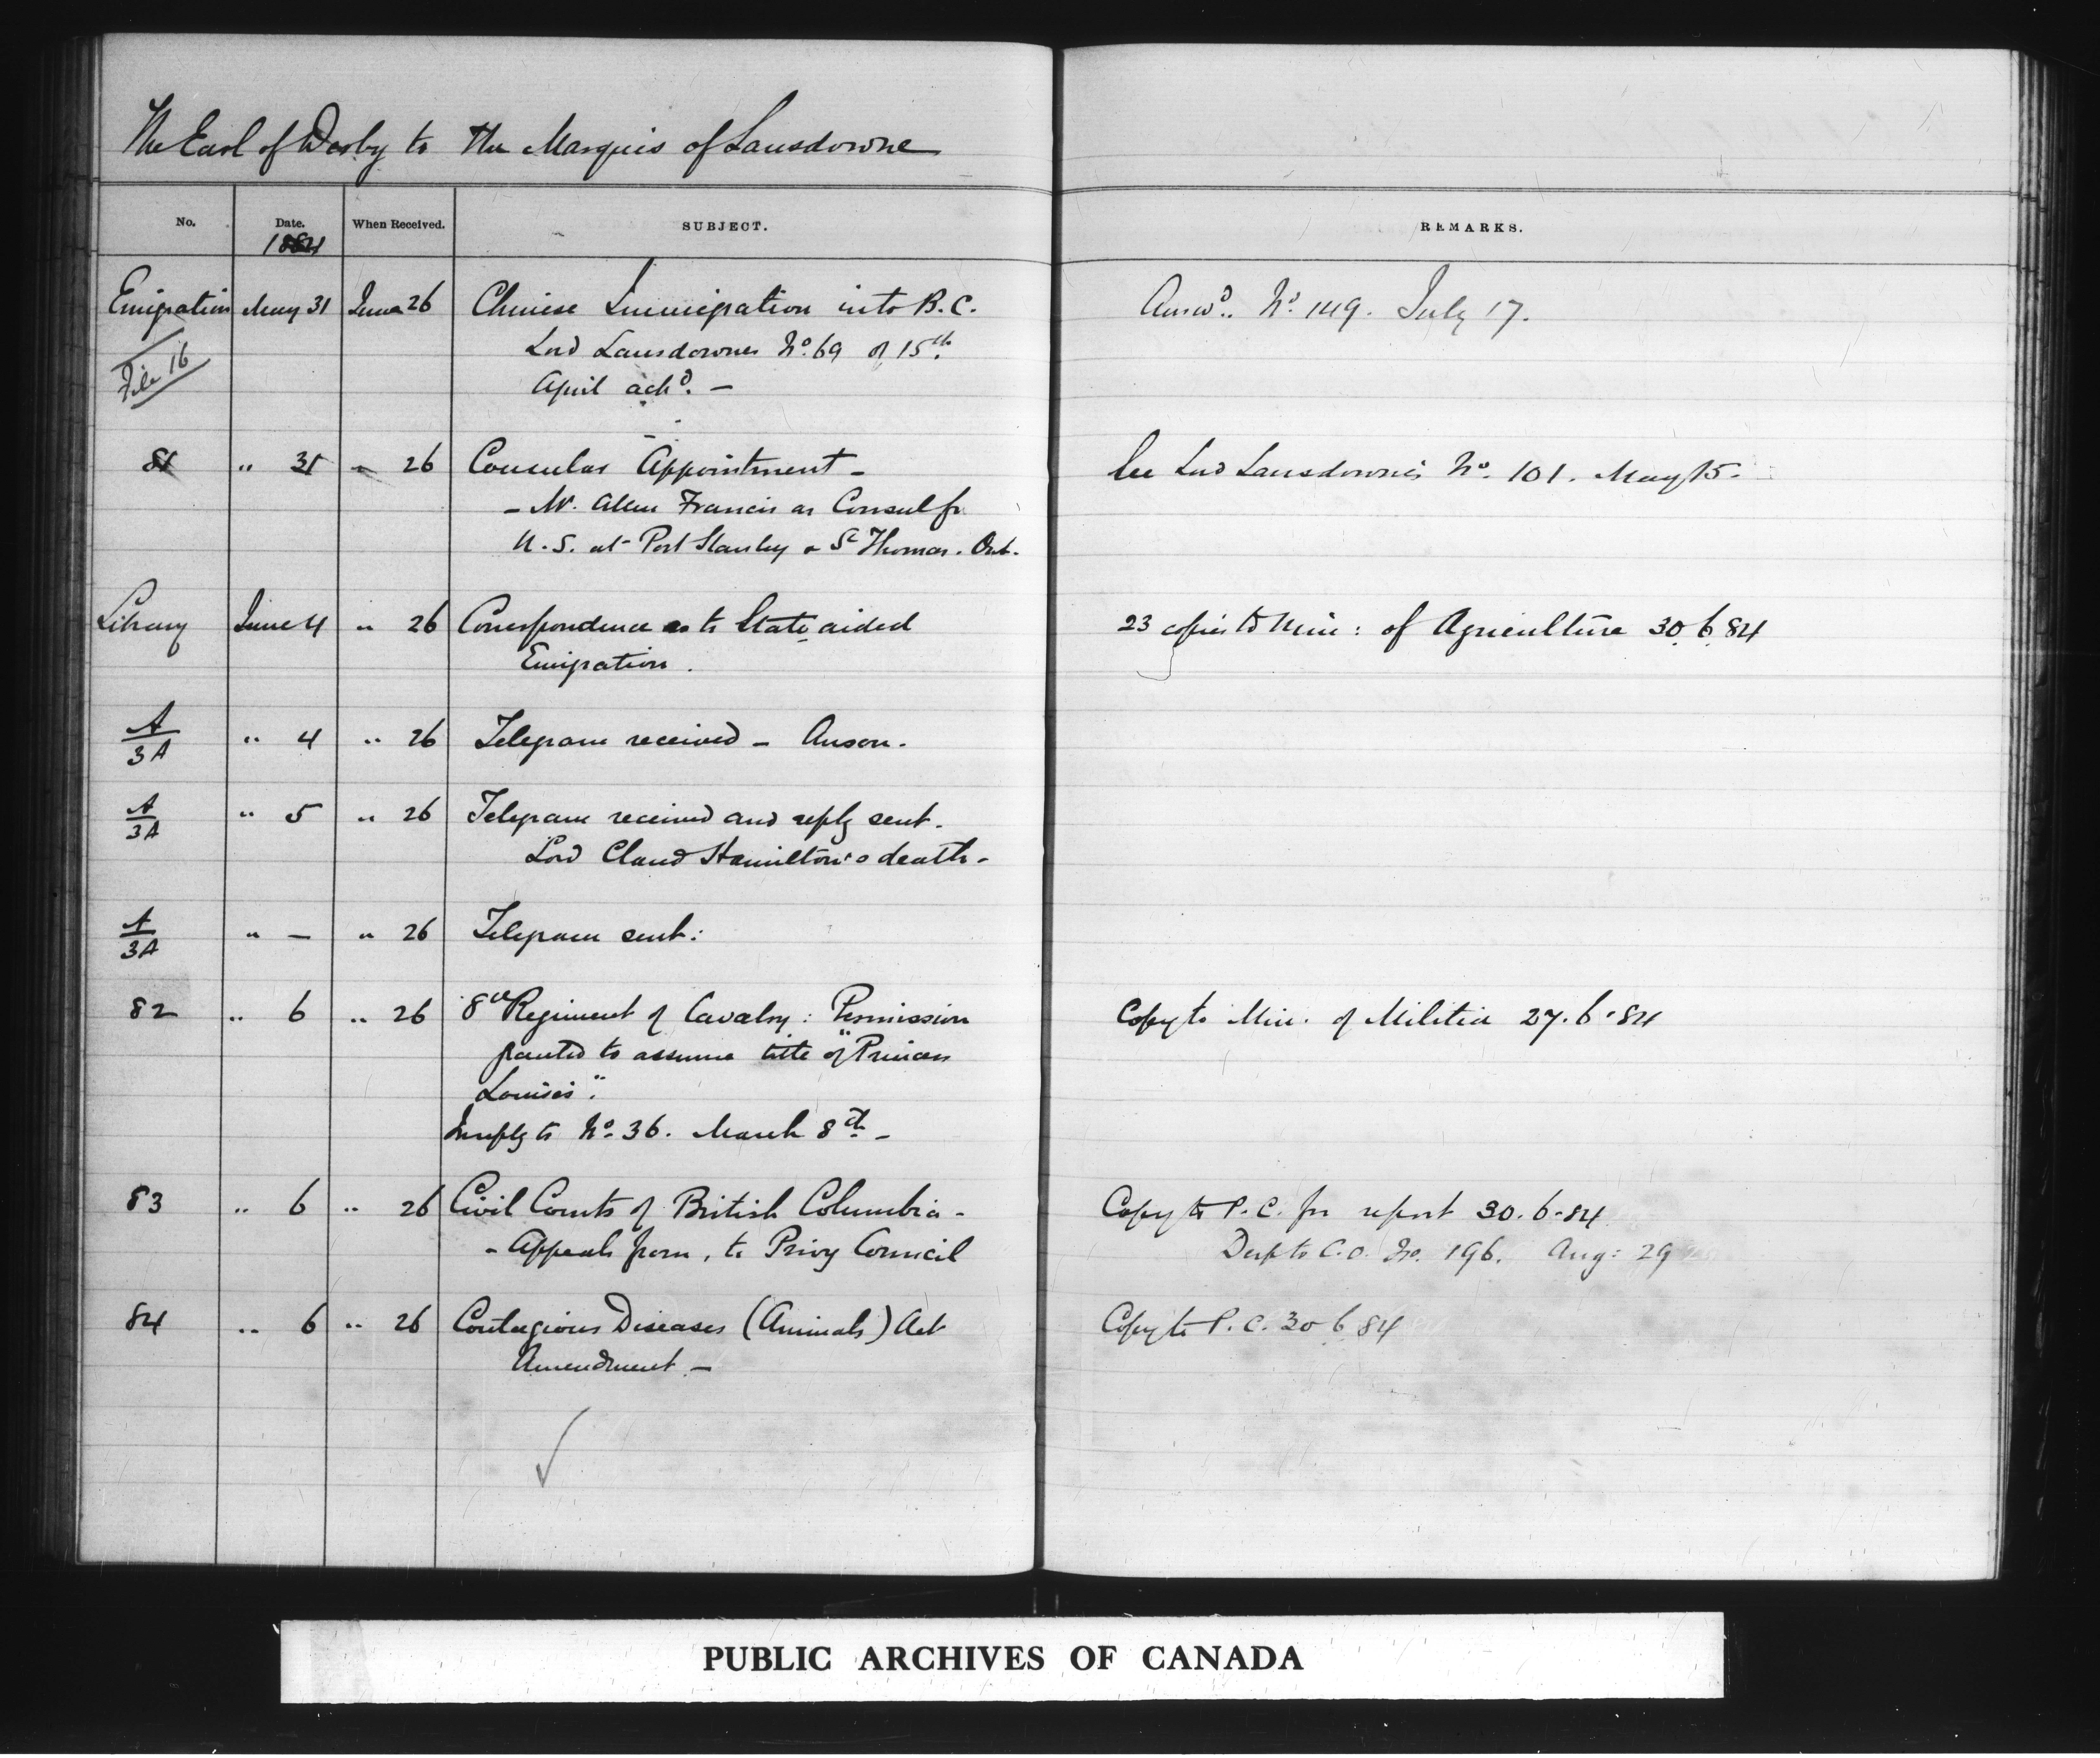 The Earl of Derby to the Marquis of Lansdowne
No. Date. When Received. SUBJECT. REMARKS.
1884
Emigration May 31 June 26 Chinese Immigration into B.C. Answd. No. 149. July 17.
File 16 Lord Lansdownes No. 69 of 15th
April ackd. —
81 " 31 " 26 Consular Appointment — See Lord Lansdowne's No. 101. May 15.
— Mr. Allen Francis as Consul for
U.S. at Port Stanley & St Thomas. Ont.
Library June 4 " 26 Correspondence as to State aided 23 copies to Min: of Agriculture 30.6.84
Emigration.
A/3A " 4 " 26 Telegram received — Anson.
A/3A " 5 " 26 Telegram received and reply sent.
Lord Claud Hamilton's death —
A/3A " — " 26 Telegram sent:
82 " 6 " 26 8th Regiment of Cavalry: Permission Copy to Min. of Militia 27.6.84
granted to assume title of "Princess
Louise's".
In reply to No. 36. March 8th —
83 " 6 " 26 Civil Courts of British Columbia — Copy to P.C. for report 30.6.84
— Appeals from, to Privy Council Desp to C.O. No. 196. Aug: 29
84 " 6 " 26 Contagious Diseases (Animals) Act Copy to P.C. 30.6.84
Amendment —
PUBLIC ARCHIVES OF CANADA